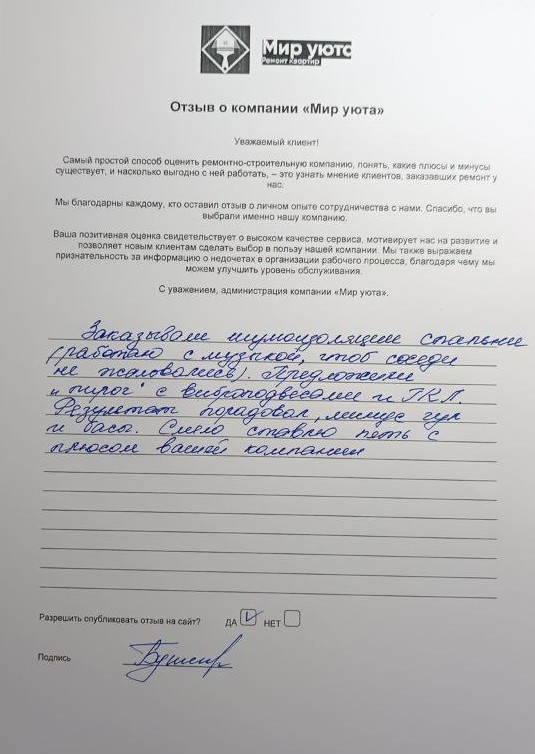 Мир уюта
Ремонт квартир
Отзыв о компании «Мир уюта»
Уважаемый клиент!
Самый простой способ оценить ремонтно-строительную компанию, понять, какие плюсы и минусы
существует, и насколько выгодно с ней работать, – это узнать мнение клиентов, заказавших ремонт у
нас.
Мы благодарны каждому, кто оставил отзыв о личном опыте сотрудничества с нами. Спасибо, что вы
выбрали именно нашу компанию.
Ваша позитивная оценка свидетельствует о высоком качестве сервиса, мотивирует нас на развитие и
позволяет новым клиентам сделать выбор в пользу нашей компании. Мы также выражаем
признательность за информацию о недочетах в организации рабочего процесса, благодаря чему мы
можем улучшить уровень обслуживания.
С уважением, администрация компании «Мир уюта».
Заказывали шумоизоляцию спальни
(работаю с музыкой, чтоб соседи
не жаловались). Предложили
"пирог" с виброподвесами и ГКЛ.
Результат порадовал, минус гул
и басы. Смело ставлю пять с
плюсом вашей компании
Разрешить опубликовать отзыв на сайт? ДА НЕТ
Подпись